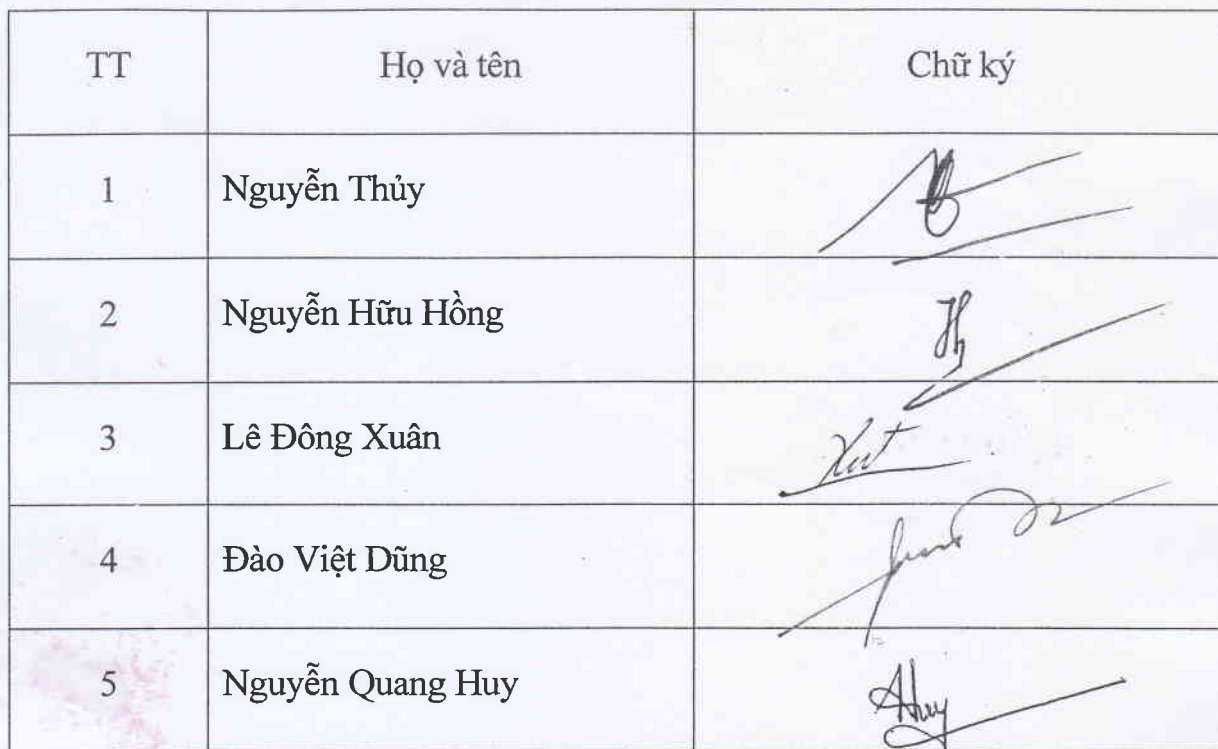 TT Họ và tên Chữ ký
1 Nguyễn Thủy
2 Nguyễn Hữu Hồng
3 Lê Đông Xuân
4 Đào Việt Dũng
5 Nguyễn Quang Huy Huy